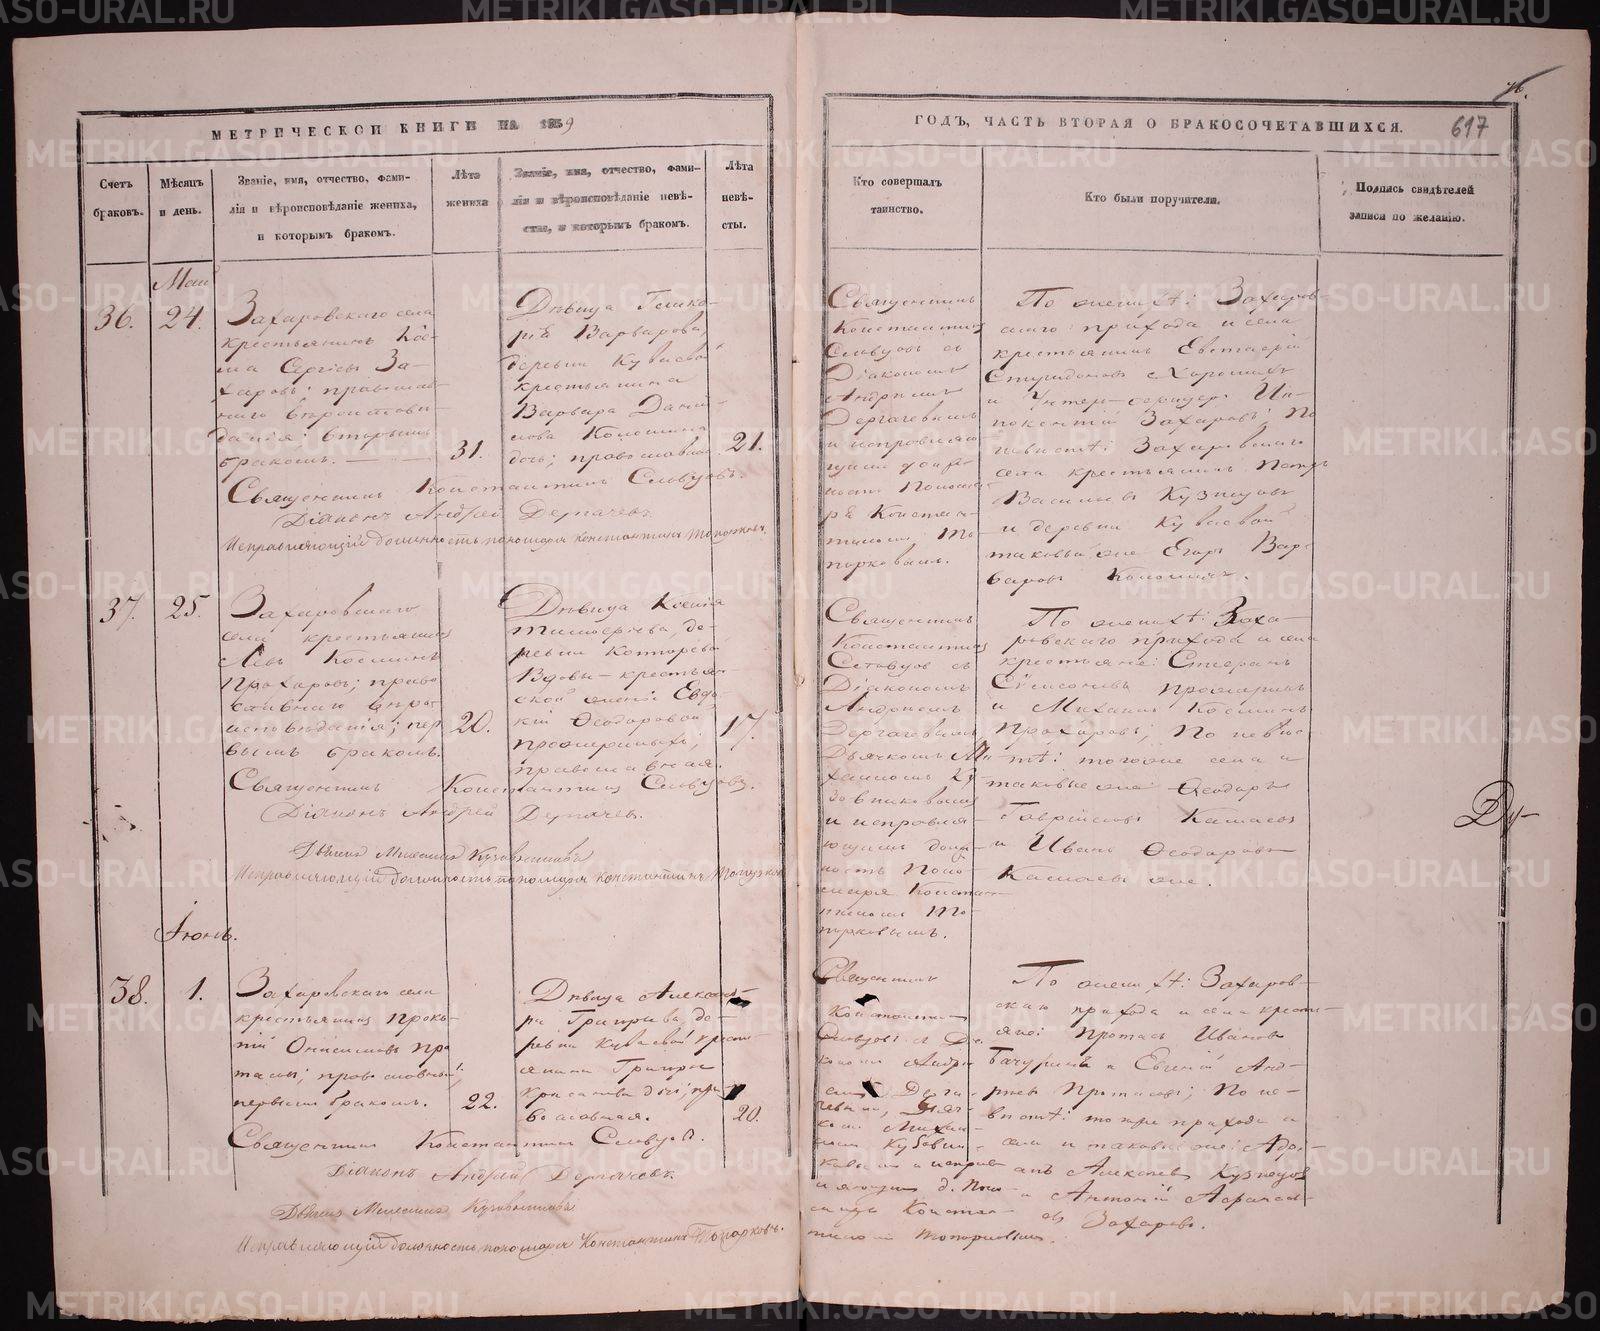 МЕТРИЧЕСКОЙ КНИГИ НА 1859
Счетъ браковъ.
Мѣсяцъ и день.
Званіе, имя, отчество, фами-
лія и вѣроисповѣданіе жениха,
и которымъ бракомъ.
Лѣта жениха
Званіе, имя, отчество, фами-
лія и вѣроисповѣданіе невѣ-
сты, и которымъ бракомъ.
Лѣта невѣ-
сты.
Май
36.
24.
Захаровскаго села
крестьянинъ Кос-
ма Сергіевъ За-
харовъ; православ-
наго вѣроисповѣ-
данія; вторымъ
бракомъ.
31.
Дѣвица Глике-
рія Варварова,
деревни Куваевой
крестьянина
Варвара Дани-
лова Колошина
дочь; православн.
21.
Священникъ Константинъ Словцовъ.
Діаконъ Андрей Дергачевъ
Исправляющій должность пономаря Константинъ Топорковъ.
37.
25.
Захаровскаго
села крестьянинъ
Левъ Косминъ
Прохоровъ; право
славнаго вѣро
исповѣданія; пер
вымъ бракомъ.
20.
Дѣвица Ксенія
Тимофеева, де-
ревни
Вдовы крестьян-
ской жены Евдо-
кіи Ѳеодоровой
православная.
17.
Священникъ Константинъ Словцовъ.
Діаконъ Андрей Дергачевъ.
Дьячекъ Михаилъ Кузовниковъ
Исправляющій должность пономаря Константинъ Топорков
Іюнь.
38.
1.
Захаровскаго села
крестьянинъ Проко-
пій Онисимовъ Про
тасовъ; православный;
первымъ бракомъ.
22.
Дѣвица Александ-
ра Григорьева, де-
ревни Куваевой крестья-
янина Григорія
дочь; пра
вославная.
20.
Священникъ Константинъ Словцовъ.
Діаконъ Андрей Дергачевъ.
Дьячекъ Михаилъ Кузовниковъ
Исправляющій должность пономаря Константинъ Топорковъ.
ГОДЪ, ЧАСТЬ ВТОРАЯ О БРАКОСОЧЕТАВШИХСЯ.
617
Кто совершалъ
таинство.
Кто были поручители.
Подпись свидѣтелей
записи по желанію.
Священникъ
Константинъ
Словцовъ съ
Діакономъ
Андреемъ
Дергачевымъ
и исправляю
щимъ долж-
ность Понома
ря Констан-
тиномъ То-
порковымъ.
По женихѣ: Захаров-
скаго прихода и села
крестьянинъ Евстафій
Спиридоновъ
и Унтер-офицеръ Ин-
нокентій Захаровъ; По
невѣстѣ: Захаровскаго
села крестьянинъ Петръ
Васильевъ Кузнецовъ
и деревни Куваевой
таковый же Егоръ Вар-
варовъ Колошинъ.
Священникъ
Константинъ
Словцовъ съ
Діакономъ
Андреемъ
Дергачевымъ
Дьячкомъ Ми-
хаиломъ Ку-
зовниковымъ
и исправля-
ющимъ долж-
ность Поно-
маря Констан-
тиномъ То-
порковымъ.
По женихѣ: Заха-
ровскаго прихода и села
крестьяне: Стефанъ
Симеоновъ
и Михаилъ Косминъ
Прохоровъ; По невѣс-
тѣ: тогоже села и
таковые же Ѳеодоръ
и Иванъ Ѳеодоровъ
же.
Священникъ
Константинъ
Словцовъ съ Діа-
кономъ Андре
емъ Дерга-
чевымъ, Дьяч-
комъ Михаи-
ломъ Кузовни-
ковымъ и исправ
ляющимъ д. Поно-
маря Констан-
тиномъ Топорковымъ.
По женихѣ: Захаров-
скаго прихода и села кресть-
яне: Протасъ Ивановъ
Бачуринъ и Евгеній Анд-
реевъ Протасовъ; По не-
вѣстѣ: тогоже прихода и
села и таковые же: Адрі-
анъ Алексѣевъ Кузнецовъ
и Антоній Аѳанась-
евъ Захаровъ.
METRIKI.GASO-URAL.RU